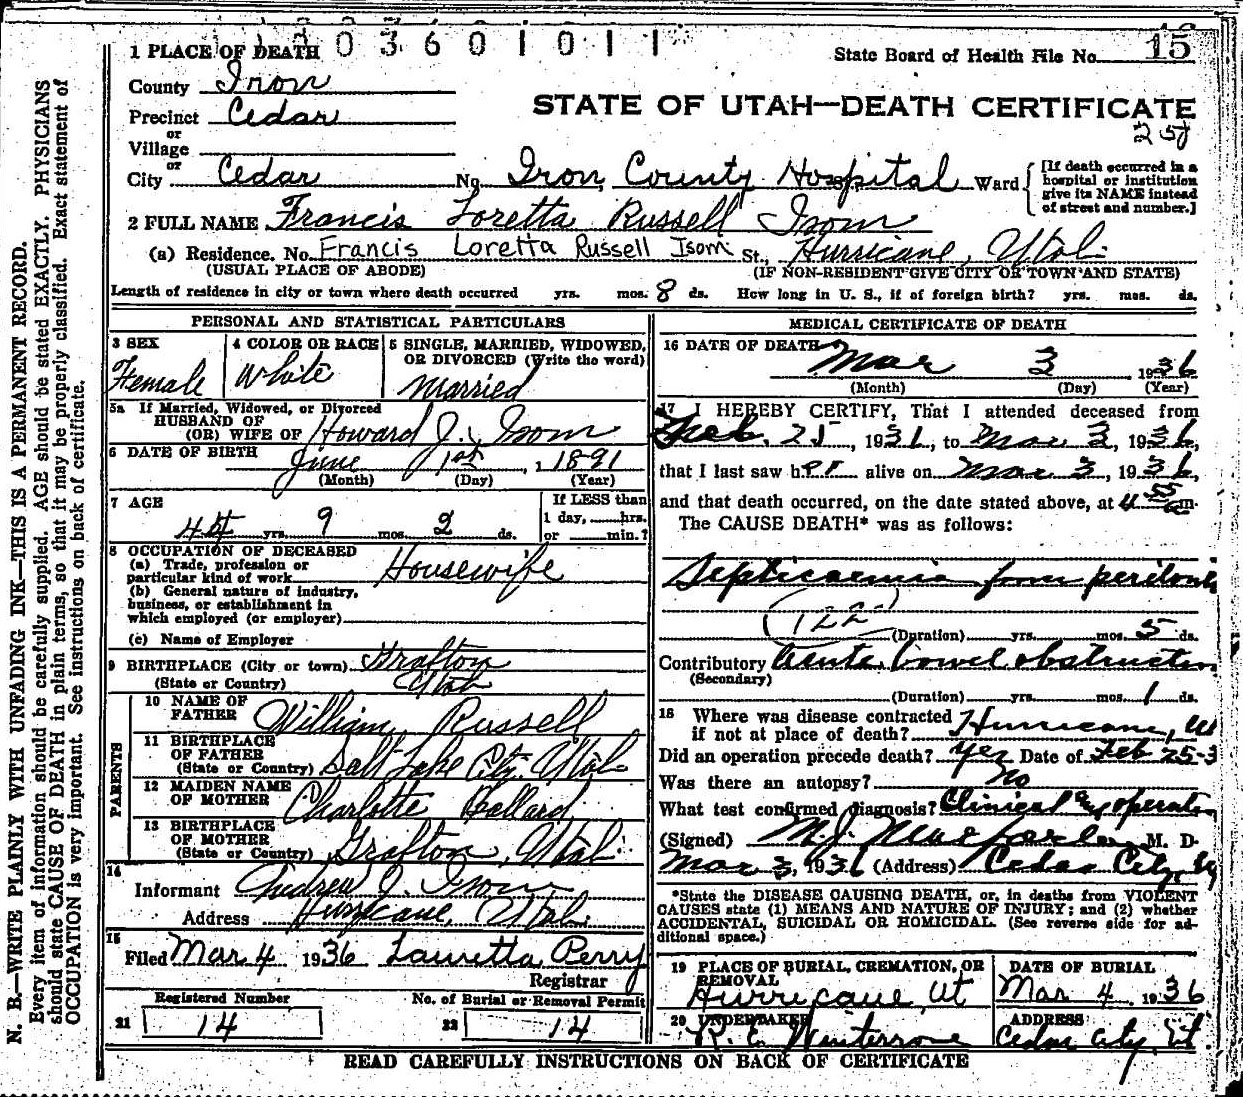 1203601011
1 PLACE OF DEATH
State Board of Health File No. 15
County Iron
STATE OF UTAH—DEATH CERTIFICATE
Precinct Cedar
or
Village
or
City Cedar No. Iron County Hospital Ward
[If death occurred in a hospital or institution give its NAME instead of street and number.]
2 FULL NAME Francis Loretta Russell Isom
(a) Residence. No. Francis Loretta Russell Isom St., Hurricane, Utah
(USUAL PLACE OF ABODE) (IF NON-RESIDENT GIVE CITY OR TOWN AND STATE)
Length of residence in city or town where death occurred yrs. mos. 8 ds. How long in U. S., if of foreign birth? yrs. mos. ds.
PERSONAL AND STATISTICAL PARTICULARS
3 SEX
Female
4 COLOR OR RACE
White
5 SINGLE, MARRIED, WIDOWED, OR DIVORCED (Write the word)
Married
5a If Married, Widowed, or Divorced
HUSBAND OF
(OR) WIFE OF Howard J. Isom
6 DATE OF BIRTH June 1st, 1891
(Month) (Day) (Year)
7 AGE
44 yrs. 9 mos. 2 ds.
If LESS than
1 day, hrs.
or min.?
8 OCCUPATION OF DECEASED
(a) Trade, profession or
particular kind of work Housewife
(b) General nature of industry,
business, or establishment in
which employed (or employer)
(c) Name of Employer
9 BIRTHPLACE (City or town) Grafton
(State or Country) Utah
PARENTS
10 NAME OF
FATHER William Russell
11 BIRTHPLACE
OF FATHER
(State or Country) Salt Lake City, Utah
12 MAIDEN NAME
OF MOTHER Charlotte Ballard
13 BIRTHPLACE
OF MOTHER
(State or Country) Grafton, Utah
14
Informant Andrew J. Isom
Address Hurricane, Utah
15
Filed Mar 4 1936 Lauretta Perry
Registrar
Registered Number No. of Burial or Removal Permit
21 14 22 14
MEDICAL CERTIFICATE OF DEATH
16 DATE OF DEATH Mar 3 1936
(Month) (Day) (Year)
17 I HEREBY CERTIFY, That I attended deceased from
Feb. 25, 1936, to Mar 3, 1936,
that I last saw her alive on Mar 3, 1936,
and that death occurred, on the date stated above, at 4 55 a m.
The CAUSE DEATH* was as follows:
Septicaemia from peritonitis
122
(Duration) yrs. mos. 5 ds.
Contributory Acute bowel obstruction
(Secondary)
(Duration) yrs. mos. 1 ds.
18 Where was disease contracted
if not at place of death? Hurricane, Ut
Did an operation precede death? Yes Date of Feb 25-3
Was there an autopsy? No
What test confirmed diagnosis? Clinical and operation
(Signed) M. J. Macfarlane M. D.
Mar 3, 1936 (Address) Cedar City, U
*State the DISEASE CAUSING DEATH, or, in deaths from VIOLENT
CAUSES state (1) MEANS AND NATURE OF INJURY; and (2) whether
ACCIDENTAL, SUICIDAL OR HOMICIDAL. (See reverse side for ad-
ditional space.)
19 PLACE OF BURIAL, CREMATION, OR
REMOVAL
Hurricane Ut
DATE OF BURIAL
Mar 4 1936
20 UNDERTAKER
R. C. Winterrose
ADDRESS
Cedar City, Ut.
READ CAREFULLY INSTRUCTIONS ON BACK OF CERTIFICATE
N. B.—WRITE PLAINLY WITH UNFADING INK—THIS IS A PERMANENT RECORD.
Every item of information should be carefully supplied. AGE should be stated EXACTLY. PHYSICIANS
should state CAUSE OF DEATH in plain terms, so that it may be properly classified. Exact statement of
OCCUPATION is very important. See instructions on back of certificate.